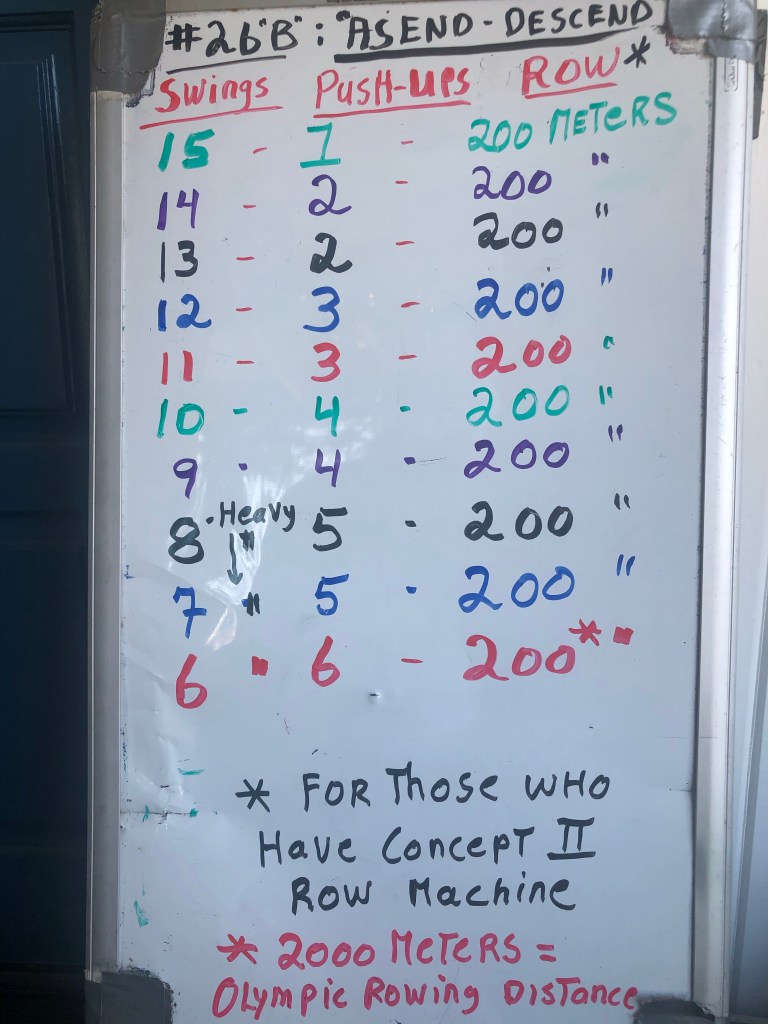 #26"B": "ASEND-DESCEND
Swings PUSH-UPS ROW*
15 - 1 - 200 METERS
14 - 2 - 200 "
13 - 2 - 200 "
12 - 3 - 200 "
11 - 3 - 200 "
10 - 4 - 200 "
9 - 4 - 200 "
8 - Heavy 5 - 200 "
↓ "
7 " 5 - 200 "
6 " 6 - 200* "
* FOR Those WHO
Have Concept II
Row Machine
* 2000 METERS =
Olympic Rowing Distance